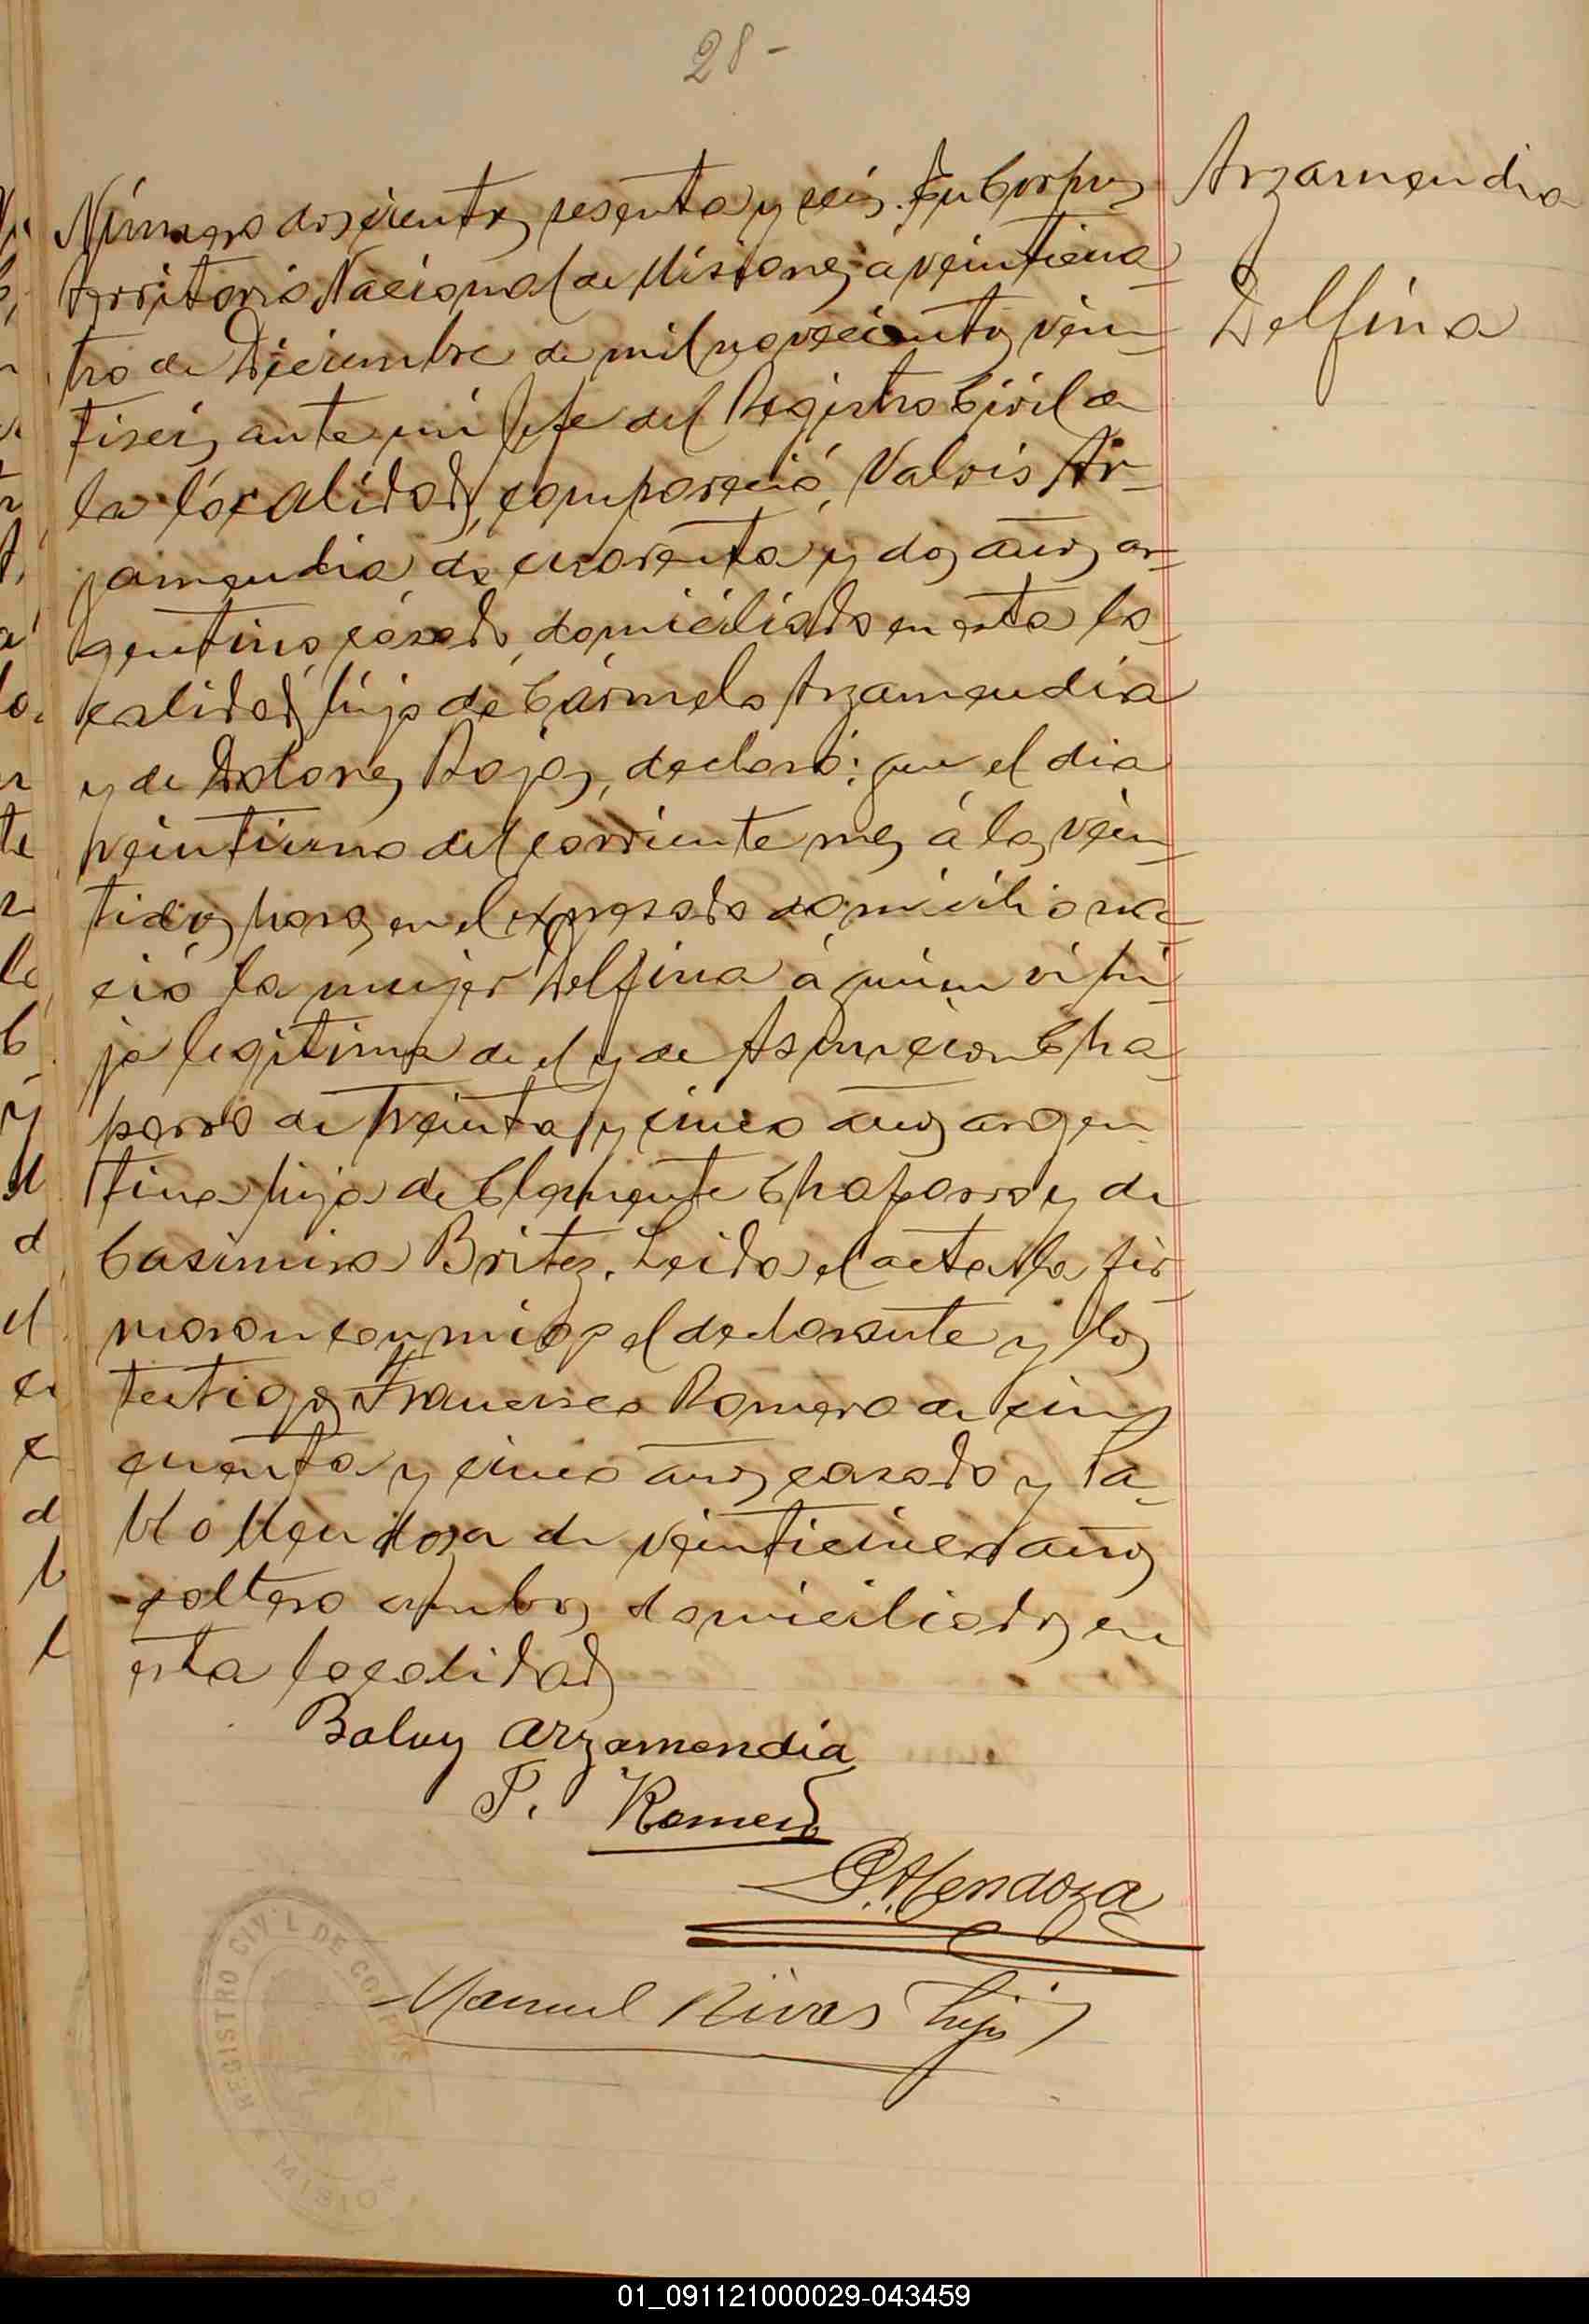 28-
Arzamendia
Delfina
Número doscientos sesenta y seis. En Corpus
territorio Nacional de Misiones, a veinticua
tro de Diciembre de mil novecientos vein
tiseis, ante mi Jefe del Registro Civil de
la localidad, compareció, Valois Ar-
zamendia de cuarenta y dos años ar-
gentino, casado, domiciliado en esta lo-
calidad, hijo de Cármelo Arzamendia
y de Dolores Rojas, declaró: que el dia
veintiuno del corriente mes á las vein
tidos horas en el expresado domicilio na
ció la mujer Delfina á quien vi hi
ja legitima de el y de Asuncion Cha
parro de treinta y cinco años argen
tina hija de Clemente Chaparro y de
Casimira Britez. Leida el acta la fir
maron conmigo el declarante y los
testigos Francisco Romero de cin
cuenta y cinco años casado y Pa-
blo Mendoza de veinticinco años
soltero ambos domiciliados en
esta localidad
Baluy Arzamendia
F. Romero
P. Mendoza
Manuel Rivas hijo
REGISTRO CIVIL DE CORPUS
MISIO
01_091121000029-043459